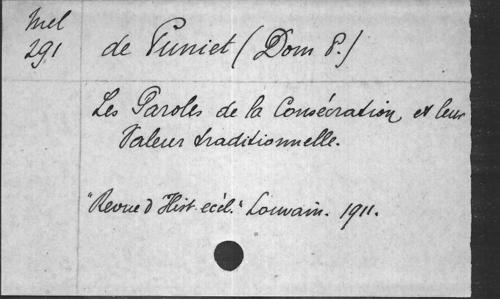 Mel
291
de Puniet (Dom P.)
Les Paroles de la Consécration et leur
Valeur traditionnelle.
"Revue d'Hist. eccl." Louvain. 1911.